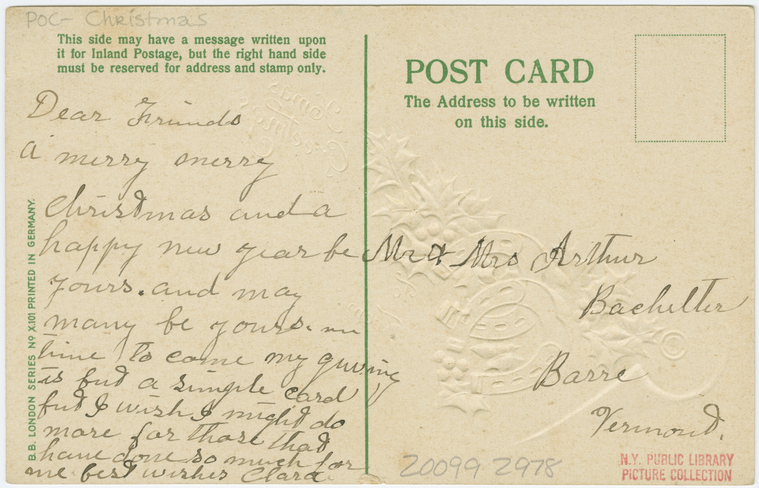 POC- Christmas
This side may have a message written upon
it for Inland Postage, but the right hand side
must be reserved for address and stamp only.
Dear Friends
A merry merry
Christmas and a
happy new year be
yours. and may
many be yours. in
time to come my giving
is but a simple card
but I wish I might do
more for those that
have done so much for
me best wishes Clara
B.B. LONDON SERIES No X101 PRINTED IN GERMANY.
POST CARD
The Address to be written
on this side.
Mr & Mrs Arthur
Bachelder
Barre
Vermont.
20099 2978
N.Y. PUBLIC LIBRARY
PICTURE COLLECTION